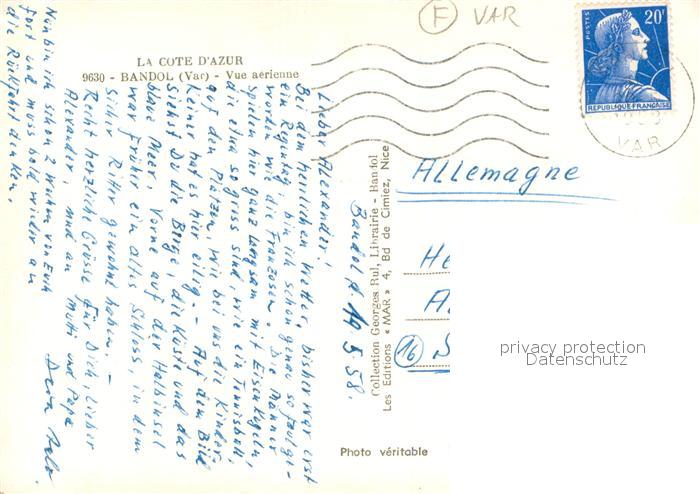 F VAR
LA COTE D'AZUR
9630 - BANDOL (Var) - Vue aérienne
POSTES 20F
REPUBLIQUE FRANÇAISE
VAR
Allemagne
Bandol, 19.5.58.
Lieber Alexander!
Bei dem herrlichen Wetter, bisher war erst
ein Regentag, bin ich schon genau so faul ge-
worden wie die Franzosen. Die Männer
spielen hier ganz langsam mit Eisenkugeln,
die etwa so gross sind, wie ein Tennisball,
auf den Plätzen, wie bei uns die Kinder.
Keiner hat es hier eilig. - Auf dem Bild
siehst Du die Berge, die Küste und das
blaue Meer. Vorne auf der Halbinsel
war früher ein altes Schloss, in dem
sicher Ritter gewohnt haben. -
Recht herzliche Grüsse für Dich, lieber
Alexander, und an Mutti und Papa
Dein
Nun bin ich schon 2 Wochen von Euch
fort und muss bald wieder an
die Rückfahrt denken.
Collection Georges Rul, Librairie - Bandol
Les Editions « MAR » 4, Bd de Cimiez, Nice
He
A
16
Photo véritable
privacy protection
Datenschutz